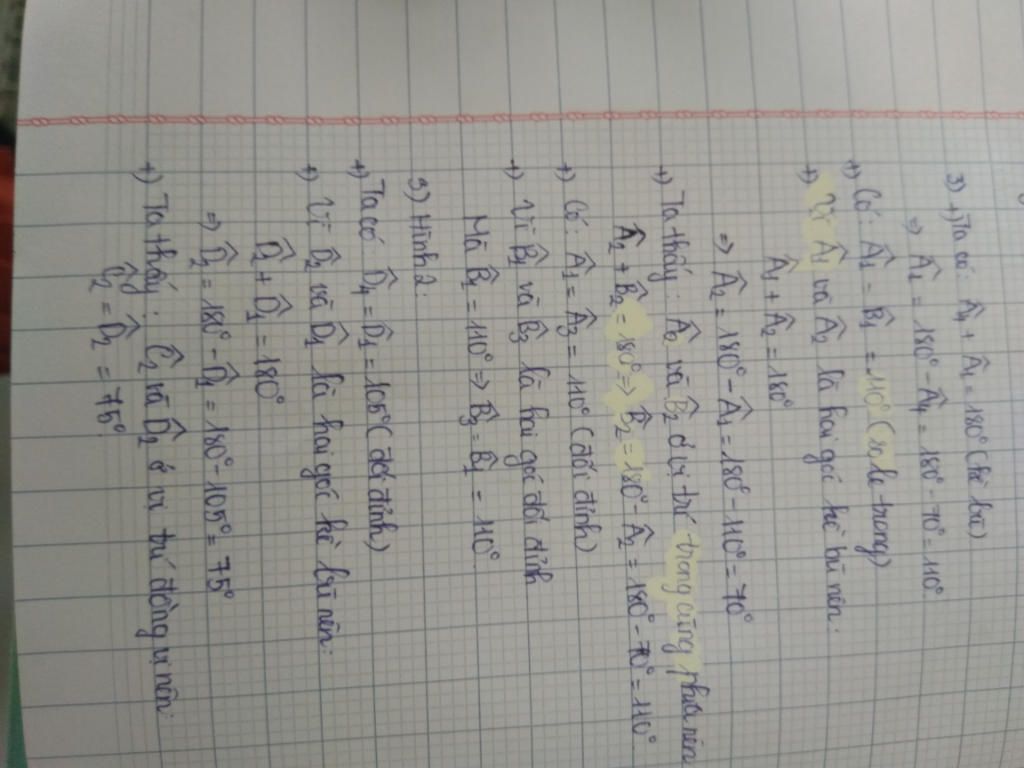 3) +) Ta có: Â₄ + Â₁ = 180° (kề bù)
=> Â₁ = 180° - Â₄ = 180° - 70° = 110°
+) Có Â₁ = B̂₁ = 110° (so le trong)
+) Vì Â₁ và Â₂ là hai góc kề bù nên:
Â₁ + Â₂ = 180°
=> Â₂ = 180° - Â₁ = 180° - 110° = 70°
+) Ta thấy: Â₂ và B̂₂ ở vị trí trong cùng phía nên
Â₂ + B̂₂ = 180° => B̂₂ = 180° - Â₂ = 180° - 70° = 110°
+) Có: Â₁ = Â₃ = 110° (đối đỉnh)
+) Vì B̂₁ và B̂₃ là hai góc đối đỉnh
Mà B̂₁ = 110° => B̂₃ = B̂₁ = 110°
3) Hình 2:
+) Ta có: D̂₄ = D̂₁ = 105° (đối đỉnh)
+) Vì D̂₂ và D̂₁ là hai góc kề bù nên:
D̂₂ + D̂₁ = 180°
=> D̂₂ = 180° - D̂₁ = 180° - 105° = 75°
+) Ta thấy: Ĉ₂ và D̂₂ ở vị trí đồng vị nên:
Ĉ₂ = D̂₂ = 75°